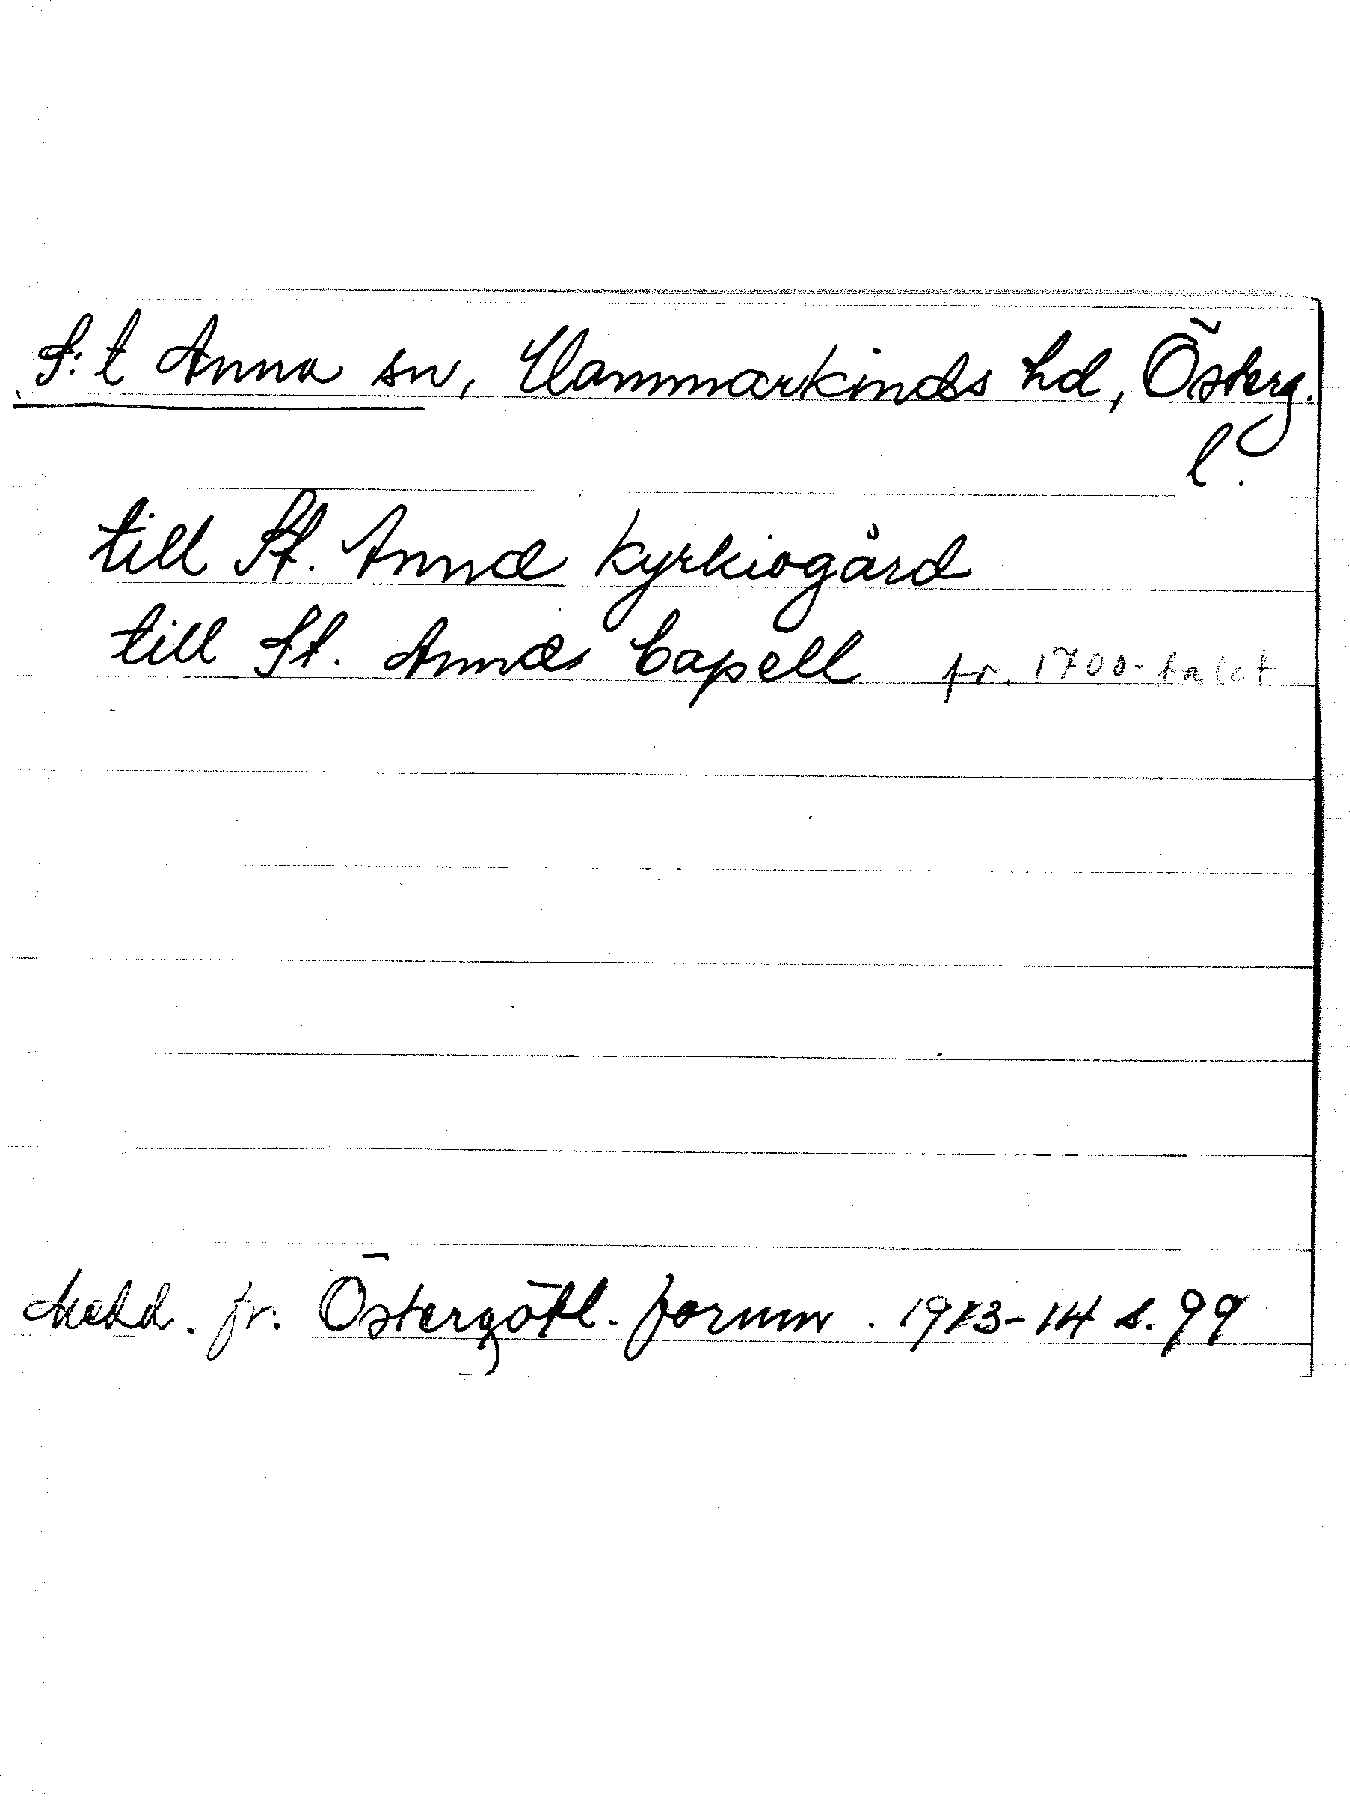 S:t Anna sn, Hammarkinds hd, Österg.
l.
till St. Annæ kyrkiogård
till St. Annæs Capell fr. 1700-talet
Medd. fr. Östergötl. fornm. 1913-14 s. 99